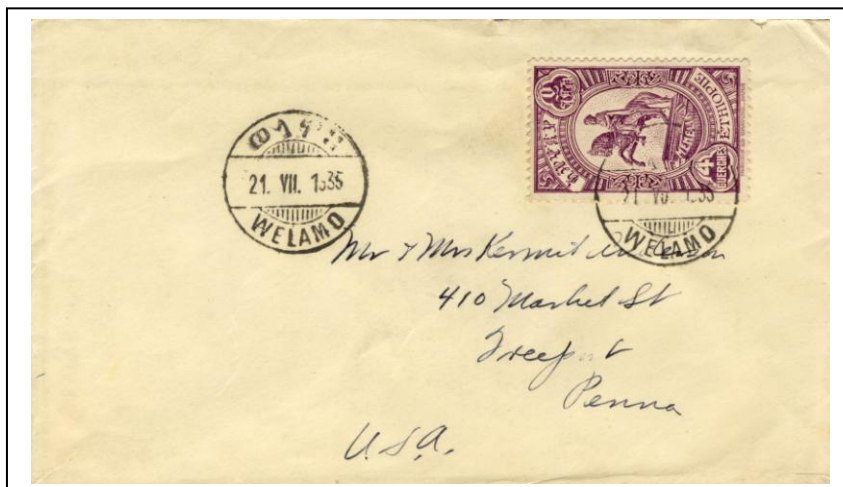 21. VII. 1935
WELAMO
ETHIOPIE
4
GUERCHES
MENELIK
21 VII 1935
WELAMO
Mr & Mrs Kermit
410 Market St
Freeport
Penna
U.S.A.